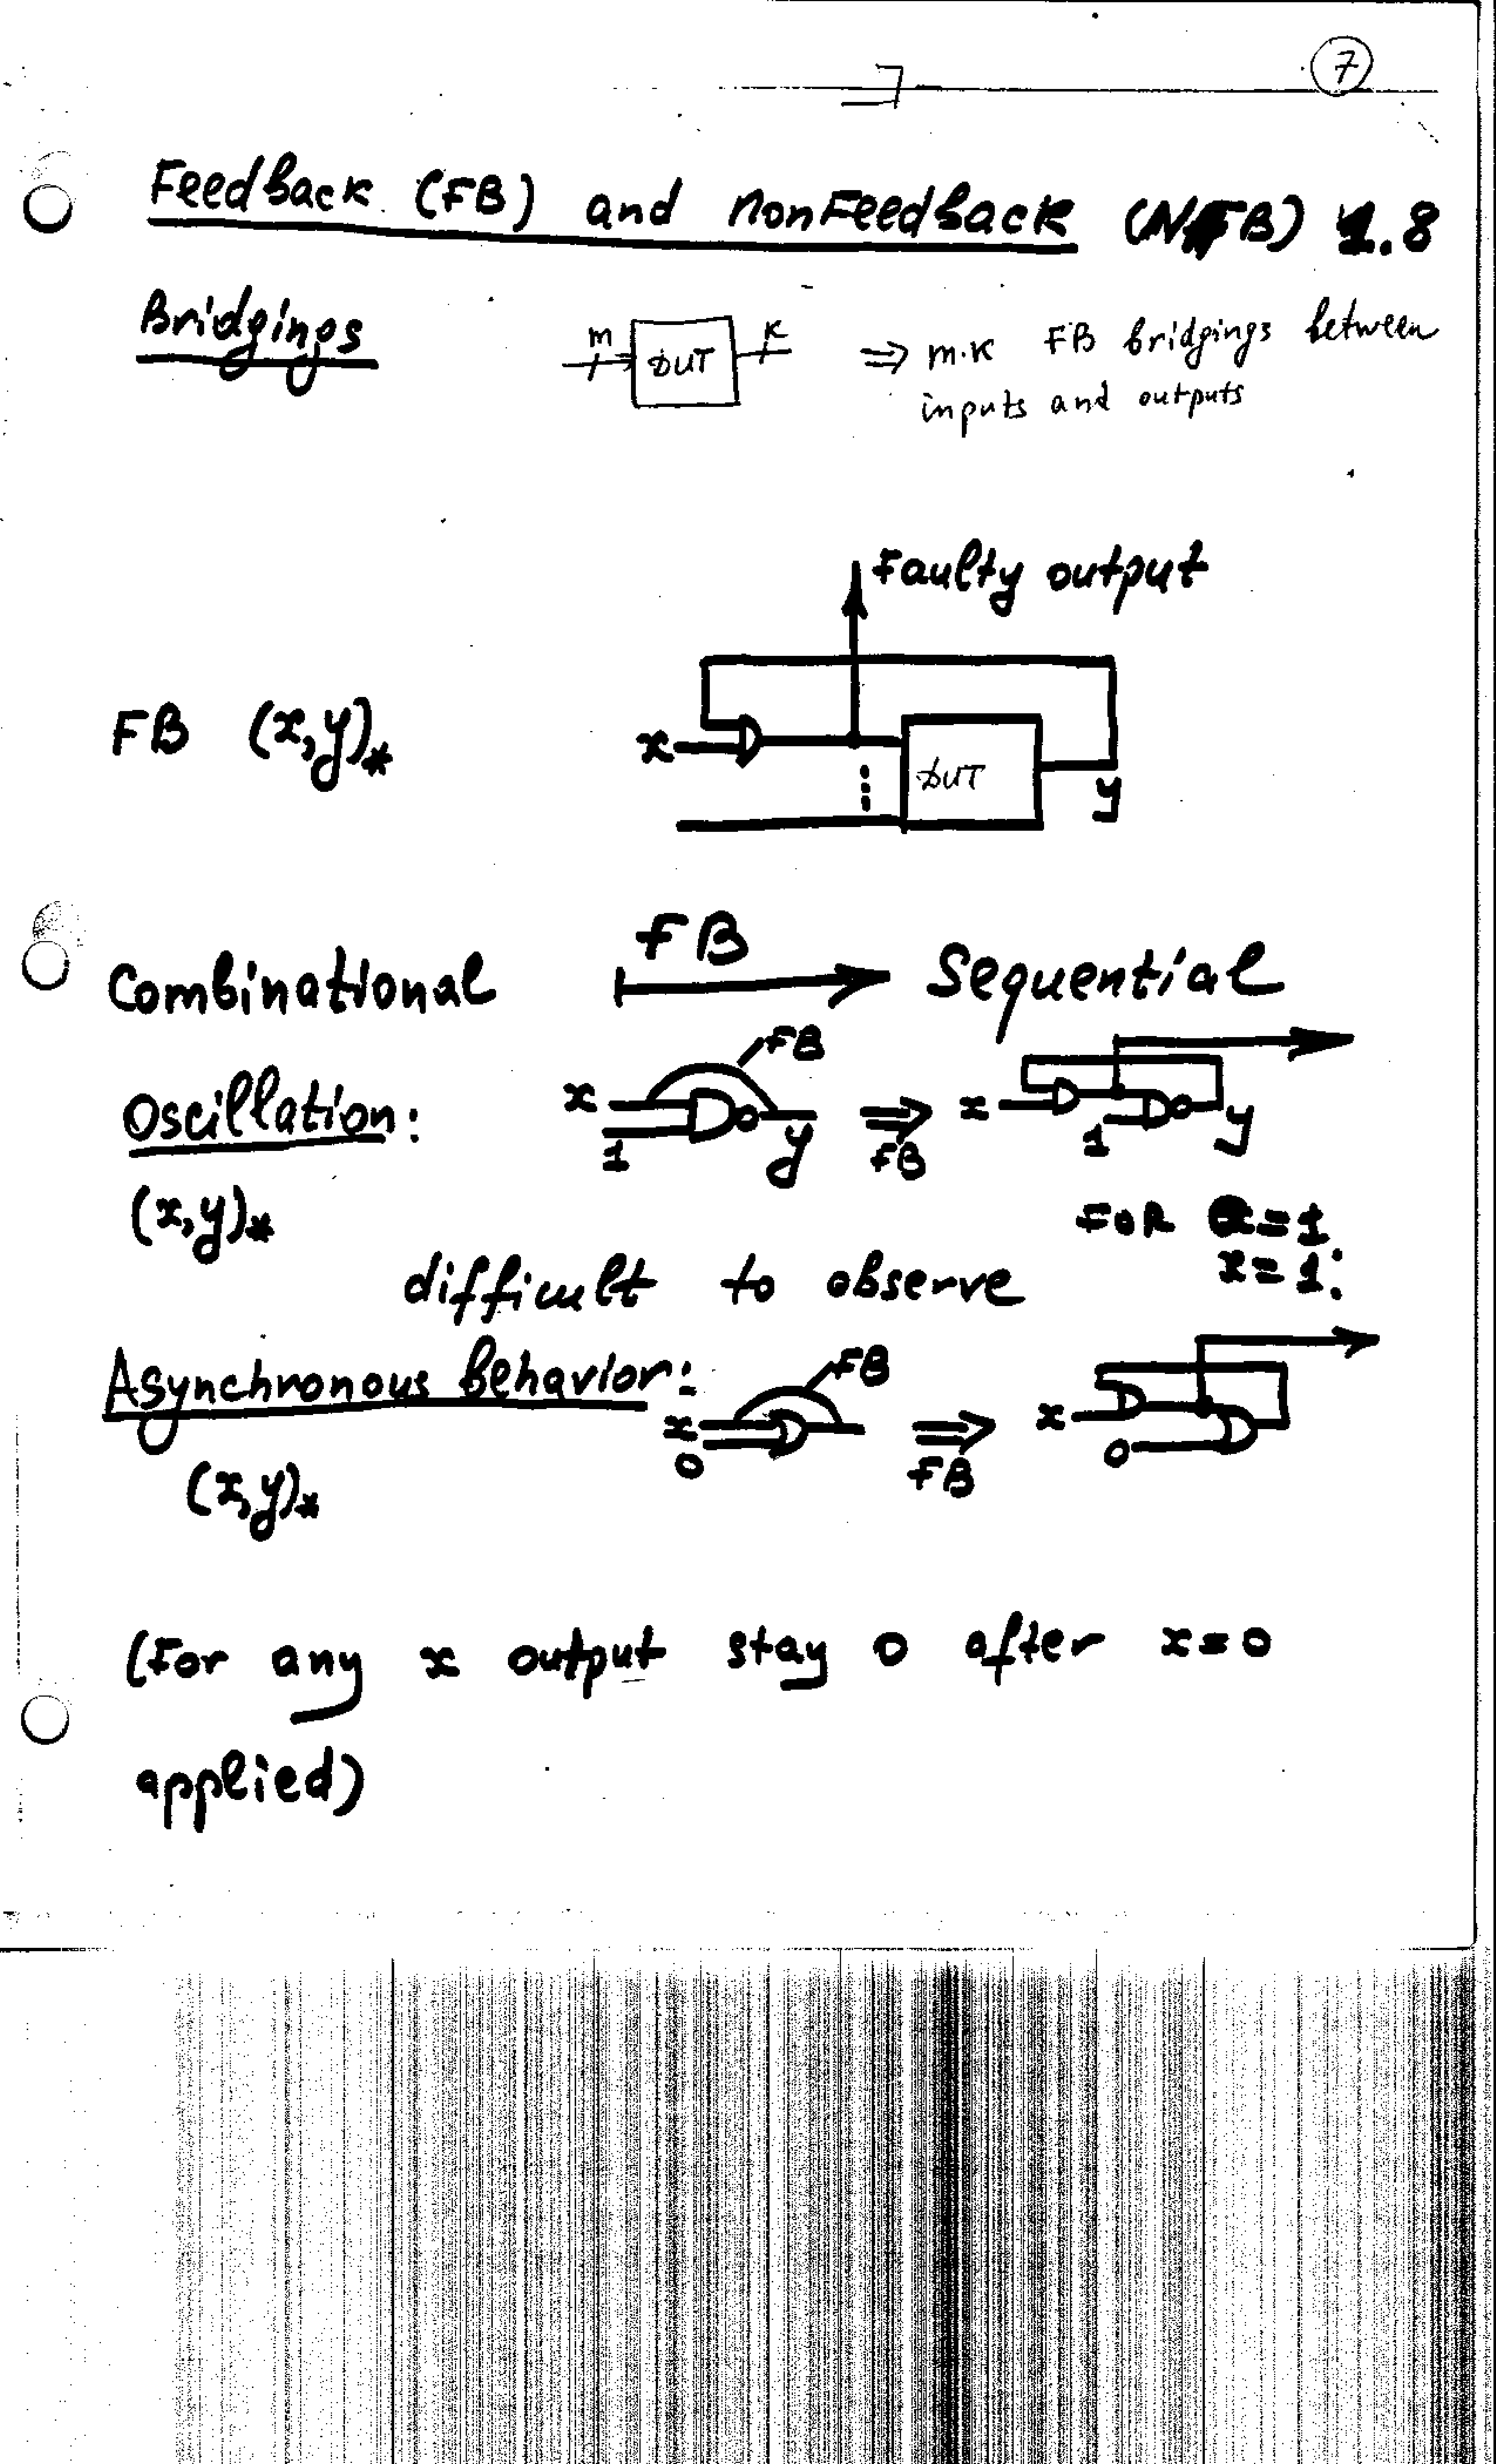 7
Feedback (FB) and nonFeedback (NFB) 1.8
Bridgings
m DUT K ⇒ m·K FB bridgings between
inputs and outputs
Faulty output
FB (x,y)*
x DUT y
Combinational FB Sequential
Oscillation: x 1 FB y ⇒ FB x 1 y
(x,y)*
FOR =1
x=1:
difficult to observe
Asynchronous behavior: x 0 FB ⇒ FB x 0
(x,y)*
(For any x output stay 0 after x=0
applied)